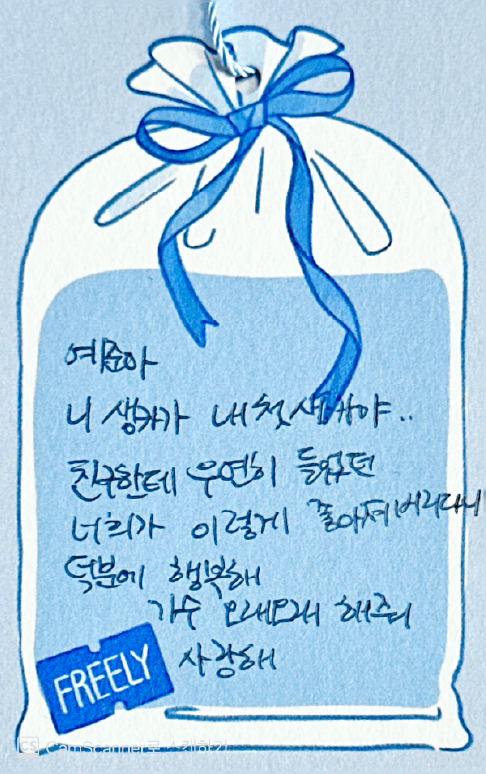 예준아
니 생카가 내 첫 생카야..
친구한테 우연히 들었던
너희가 이렇게 좋아져버리다니
덕분에 행복해
가수 오래오래 해줘
사랑해
FREELY
CS CamScanner로 스캔하기